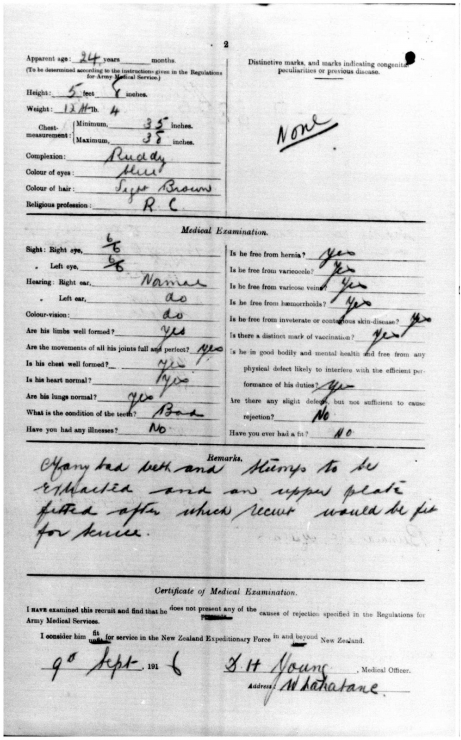 2
Apparent age: 24 years months.
(To be determined according to the instructions given in the Regulations
for Army Medical Service.)
Height: 5 feet 8 inches.
Weight: 12 st lb. 4
Chest measurement: Minimum, 35 inches.
Maximum, 38 inches.
Complexion: Ruddy
Colour of eyes: blue
Colour of hair: Light Brown
Religious profession: R. C.
Distinctive marks, and marks indicating congenital
peculiarities or previous disease.
None
Medical Examination.
Sight: Right eye, 6/6
„ Left eye, 6/6
Hearing: Right ear, Normal
„ Left ear, do
Colour-vision: do
Are his limbs well formed? Yes
Are the movements of all his joints full and perfect? yes
Is his chest well formed? yes
Is his heart normal? yes
Are his lungs normal? yes
What is the condition of the teeth? Bad
Have you had any illnesses? No
Is he free from hernia? Yes
Is he free from varicocele? Yes
Is he free from varicose veins? Yes
Is he free from hæmorrhoids? Yes
Is he free from inveterate or contagious skin-disease? Yes
Is there a distinct mark of vaccination? Yes
Is he in good bodily and mental health and free from any
physical defect likely to interfere with the efficient per-
formance of his duties? Yes
Are there any slight defects, but not sufficient to cause
rejection? No
Have you ever had a fit? No
Remarks.
Many bad teeth and stumps to be
extracted and an upper plate
fitted after which recruit would be fit
for service.
Certificate of Medical Examination.
I HAVE examined this recruit and find that he does not present any of the causes of rejection specified in the Regulations for
Army Medical Services.
I consider him fit for service in the New Zealand Expeditionary Force in and beyond New Zealand.
9th Sept, 1916 D. H Young, Medical Officer.
Address: Whakatane.